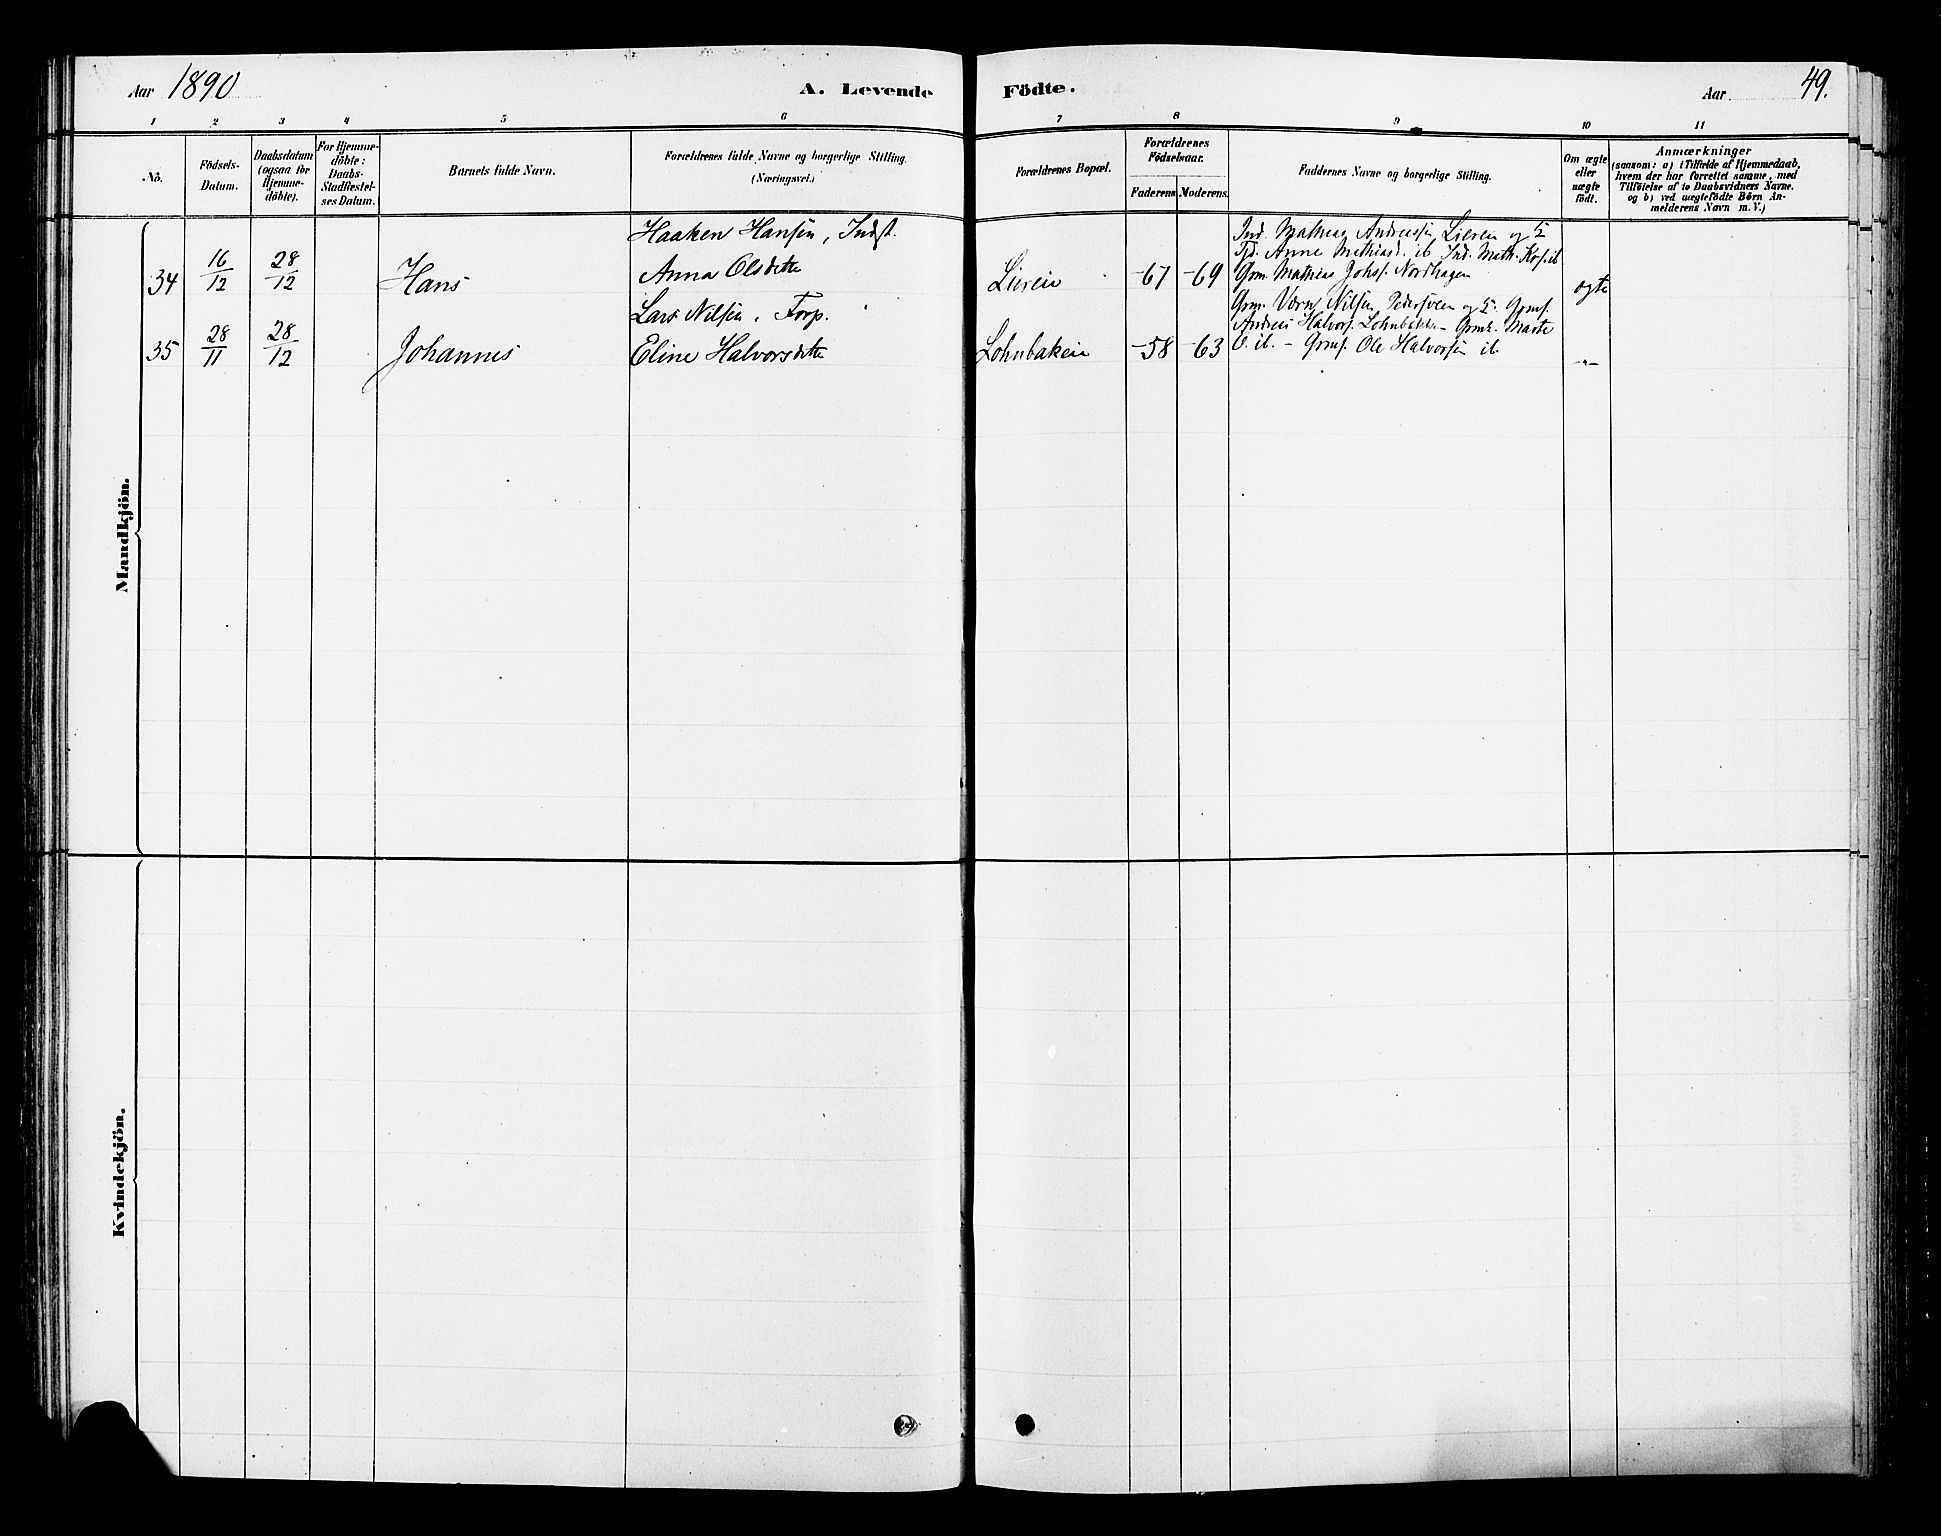 Aar 1890 A. Levende Födte. Aar 49.
1 2 3 4 5 6 7 8 9 10 11
No.
Födsels-
Datum.
Daabsdatum
(ogsaa for
Hjemme-
döbte).
For Hjemme-
döbte:
Daabs-
Stadfæstel-
ses Datum.
Barnets fulde Navn.
Forældrenes fulde Navne og borgerlige Stilling.
(Næringsvei.)
Forældrenes Bopæl.
Forældrenes
Födselsaar.
Faderens Moderens.
Faddernes Navne og borgerlige Stilling.
Om ægte
eller
uægte
födt.
Anmærkninger
(saasom: a) i Tilfælde af Hjemmedaab,
hvem der har forrettet samme, med
Tilföielse af to Daabsvidners Navne.
og b) ved uægtefödte Börn An-
melderens Navn m. V.)
Mandkjön.
Haaken Hansen, Indst.
34 16/12 28/12 Hans Anna Olsdtte Lieren -67 -69 ægte
Ind. Mathias Andreasen Lieren og
Anne Mathiasd. ib Ind. Math.
Grm. Mathias Johs. Nordhagen
Lars Nilsen, Forp.
35 28/11 28/12 Johannes Eline Halvorsdtte Lohnbaken -58 -63 -"-
Grm. Nilsen Pedersveen og Grmf.
Andreas Halvors. Lohnbakken - Marte
ib. - Grmf. Ole Halvorsen ib.
Kvindekjön.